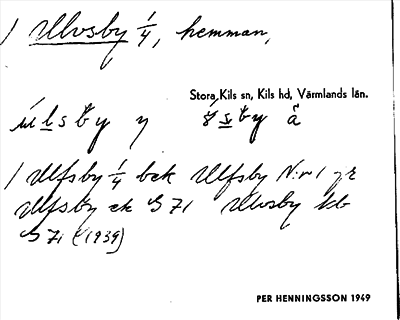 / Ulvsby 1/4, hemman,
Stora Kils sn, Kils hd, Värmlands län.
úlsby y ŏ́sby å
/ Ulfsby 1/4 bek Ulfsby N:o 1 gr
Ulfsby ek G 71 Ulvsby kb
G 71 (1939)
PER HENNINGSSON 1949